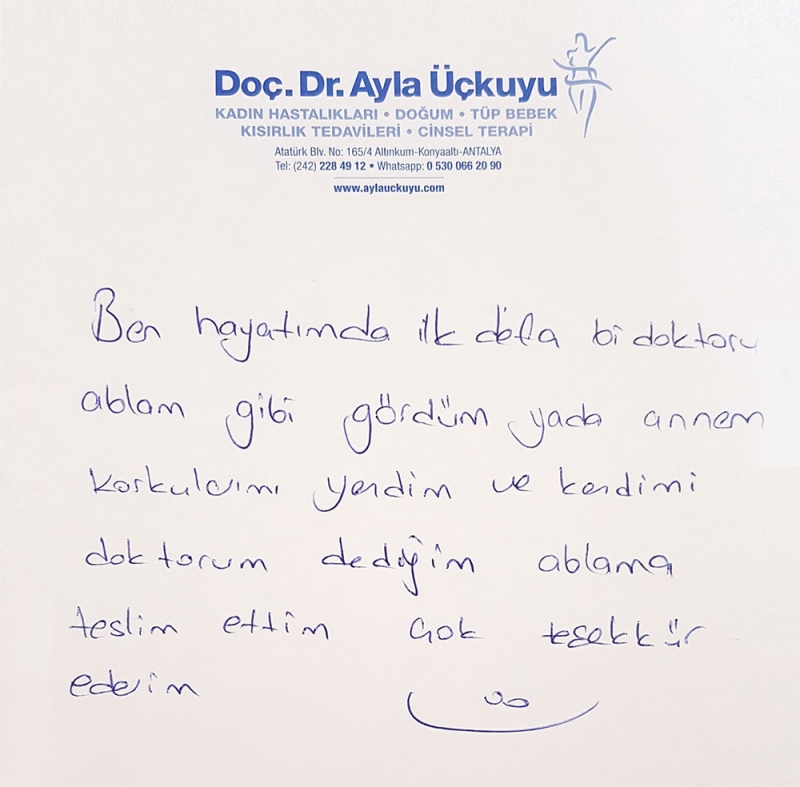 Doç. Dr. Ayla Üçkuyu
KADIN HASTALIKLARI • DOĞUM • TÜP BEBEK
KISIRLIK TEDAVİLERİ • CİNSEL TERAPİ
Atatürk Blv. No: 165/4 Altınkum-Konyaaltı-ANTALYA
Tel: (242) 228 49 12 • Whatsapp: 0 530 066 20 90
www.aylauckuyu.com
Ben hayatımda ilk defa bi doktoru
ablam gibi gördüm yada annem
korkularımı yendim ve kendimi
doktorum dediğim ablama
teslim ettim çok teşekkür
ederim